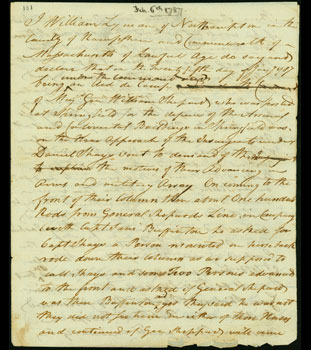 Feb. 6th 1787
I William Lyman of Northampton in the
County of Hampshire and Commonwealth of
Massachusetts of Lawful Age do say and
declare that on the twenty fifth day of Jany
being an Aid de Camp
of Majr Genl William Shepard, who was posted
at Springfield for the defence of the Arsenal
and Continental Buildings in Springfield was
on the near Approach of the Insurgents under
Daniel Shays sent to demand of
the motives of their Advancing in
Arms and military Array On coming to the
front of their Column then about One hundred
Rods from General Shepards Line in Company
with Captain Buffington he asked for
Capt Shays a Person mounted on horseback
rode down their Column as we supposed to
call Shays and some Two Persons advanced
to the front and asked if General Shepard
was there Buffington said he was not
they did not for him or either of those
and continued if Gen Shepherd will come